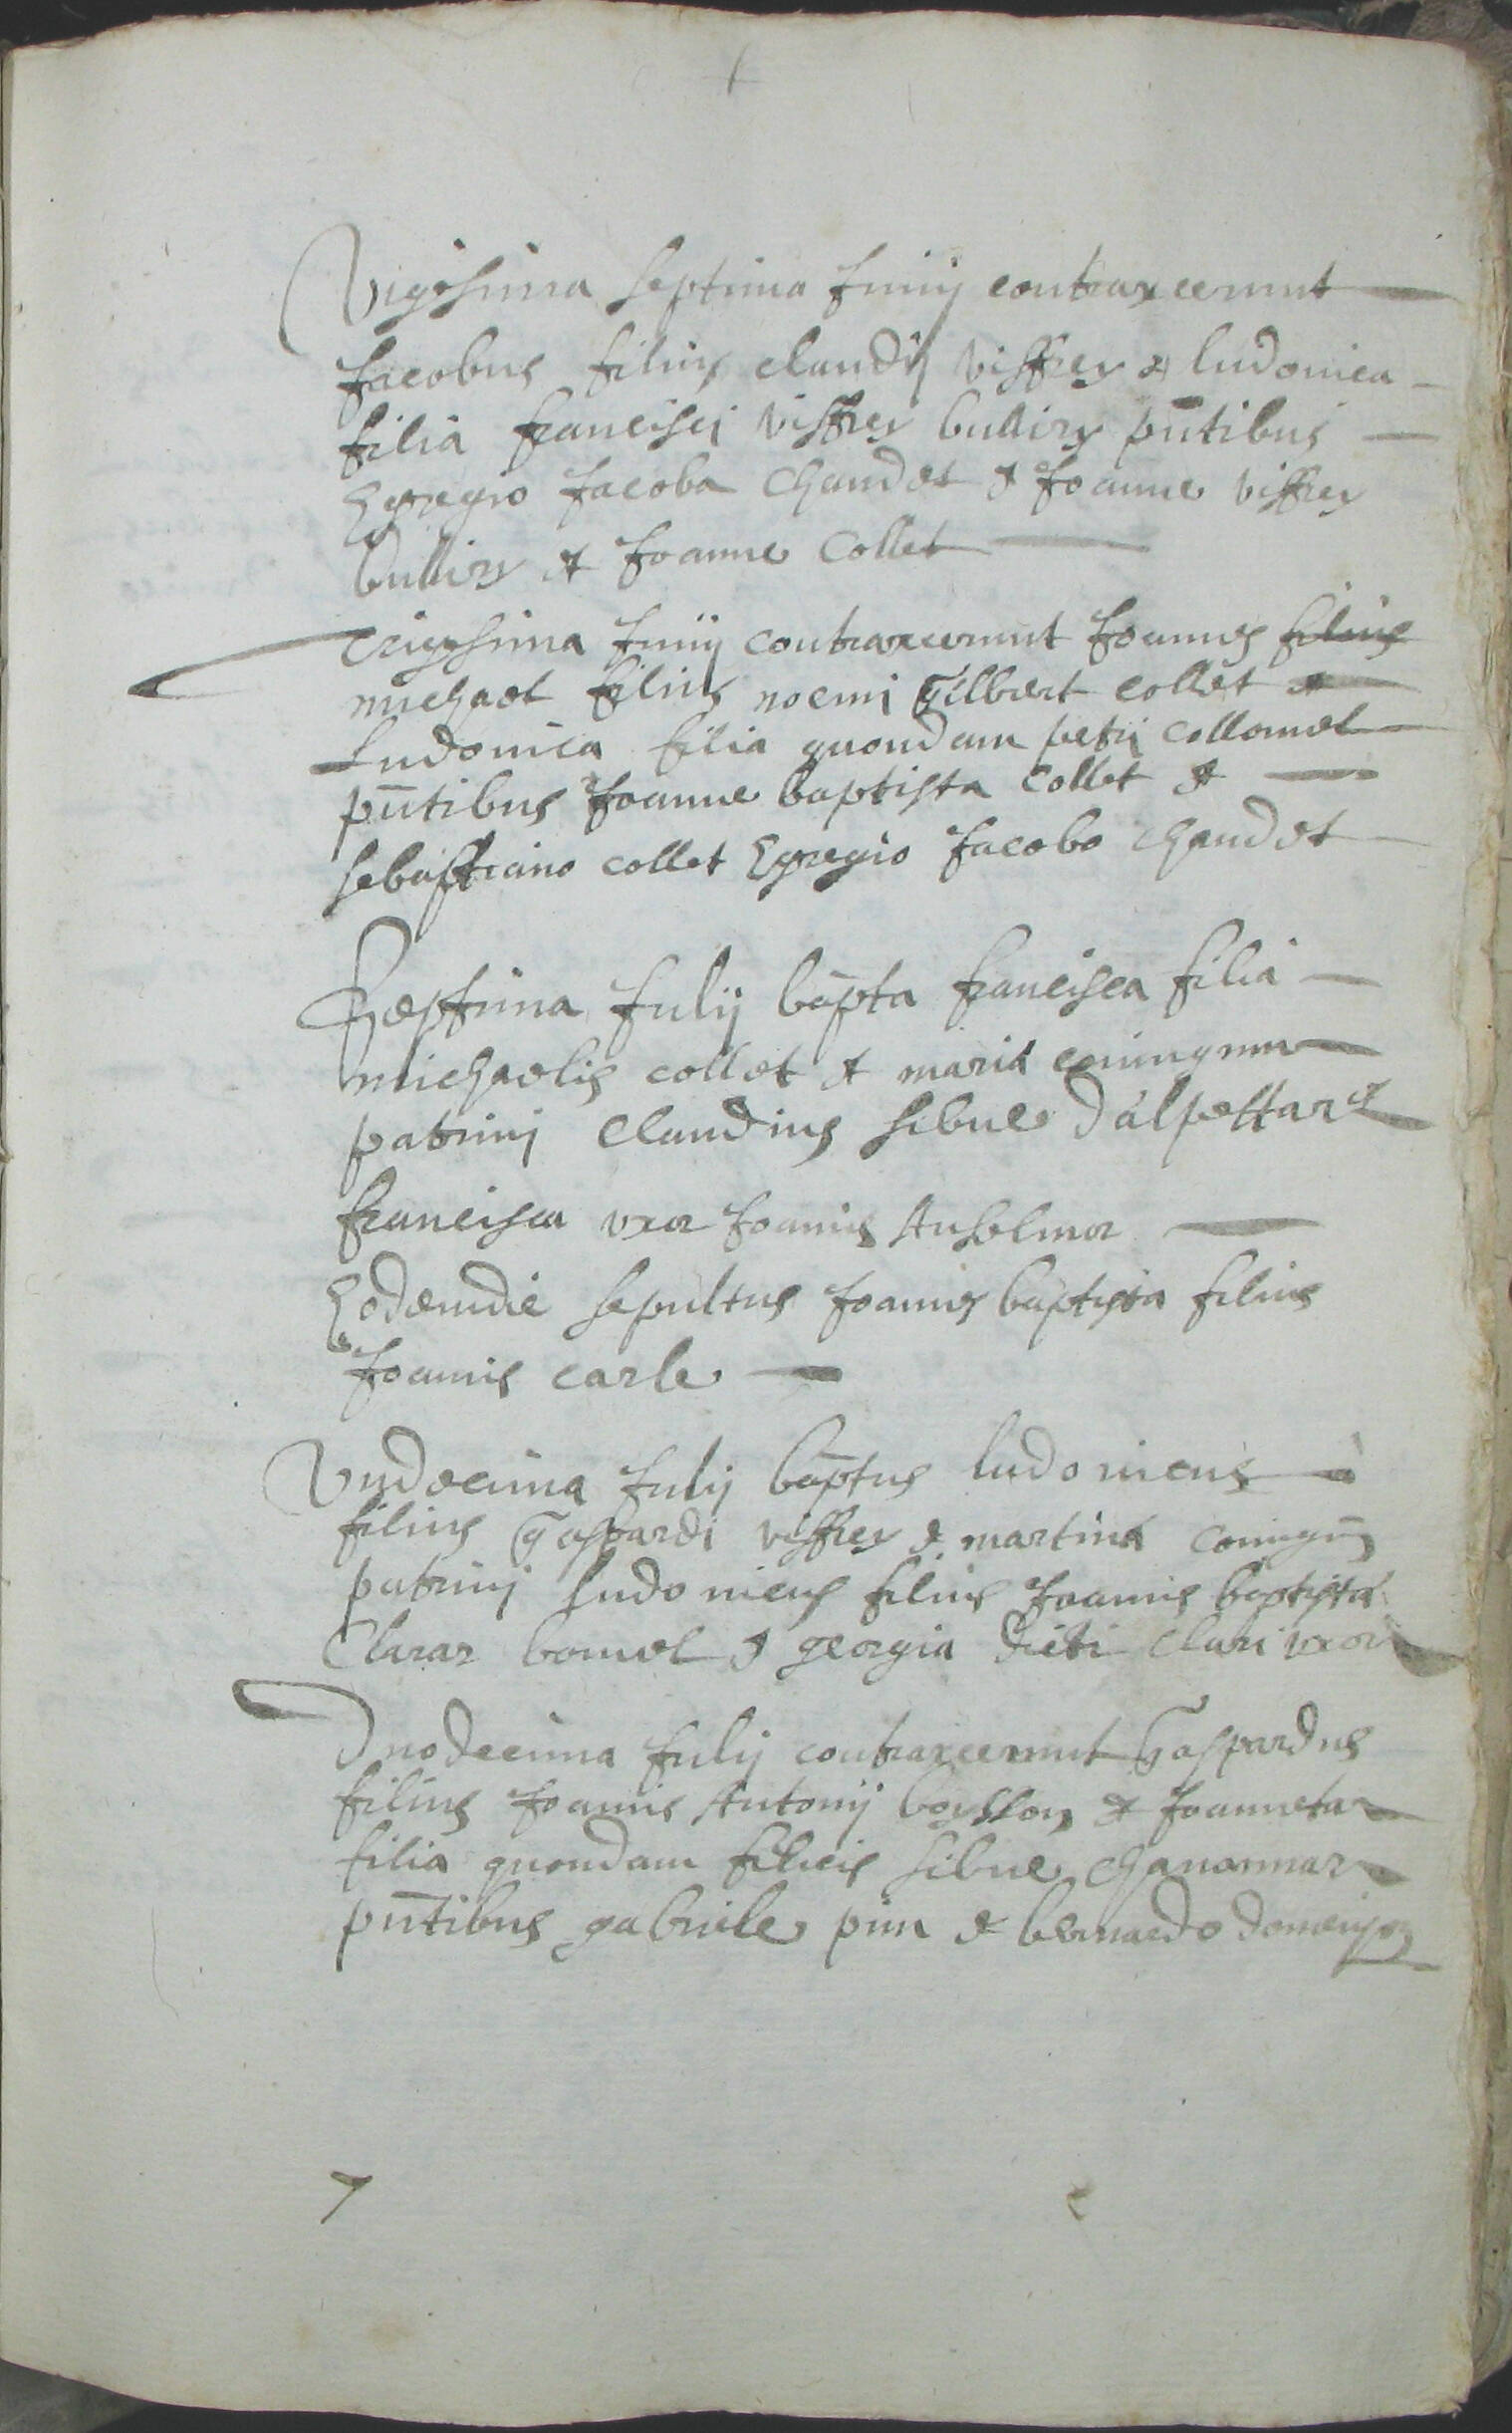 Vigesima septima Junij contraxerunt
Jacobus filius claudij viffrey & ludovica
filia francisci viffrey bulliry pn̄tibus
Egregio Jacobo Chaudet & Joanne viffrey
bulliry & Joanne Collet
Trigesima Junij contraxerunt Joannes filius
michael filius noemi Gilbert collet &
Ludovica filia quondam petri collomel
pn̄tibus Joanne baptista Collet &
sebastiano collet Egregio Jacobo chaudet
Septima Julij bāpta francisca filia
michaelis collet & maria coniugum
patrini Claudius sibue d'alpettar
francisca uxor Joannis Anselmer
Eodemdie sepultus Joannes baptista filius
Joannis carle
Undecima Julij bāptus ludovicus
filius Gaspardi viffrey & martina coniugū
patrini Ludovicus filius Joannis baptista
Clarar bomel & georgia dicti Clari uxor
Duodecima Julij contraxerunt Gaspardus
filius Joannis Antonij boysson & Joanneta
filia quondam felicis sibue chanonnar
pn̄tibus gabriele pim & bernardo domenjon
7